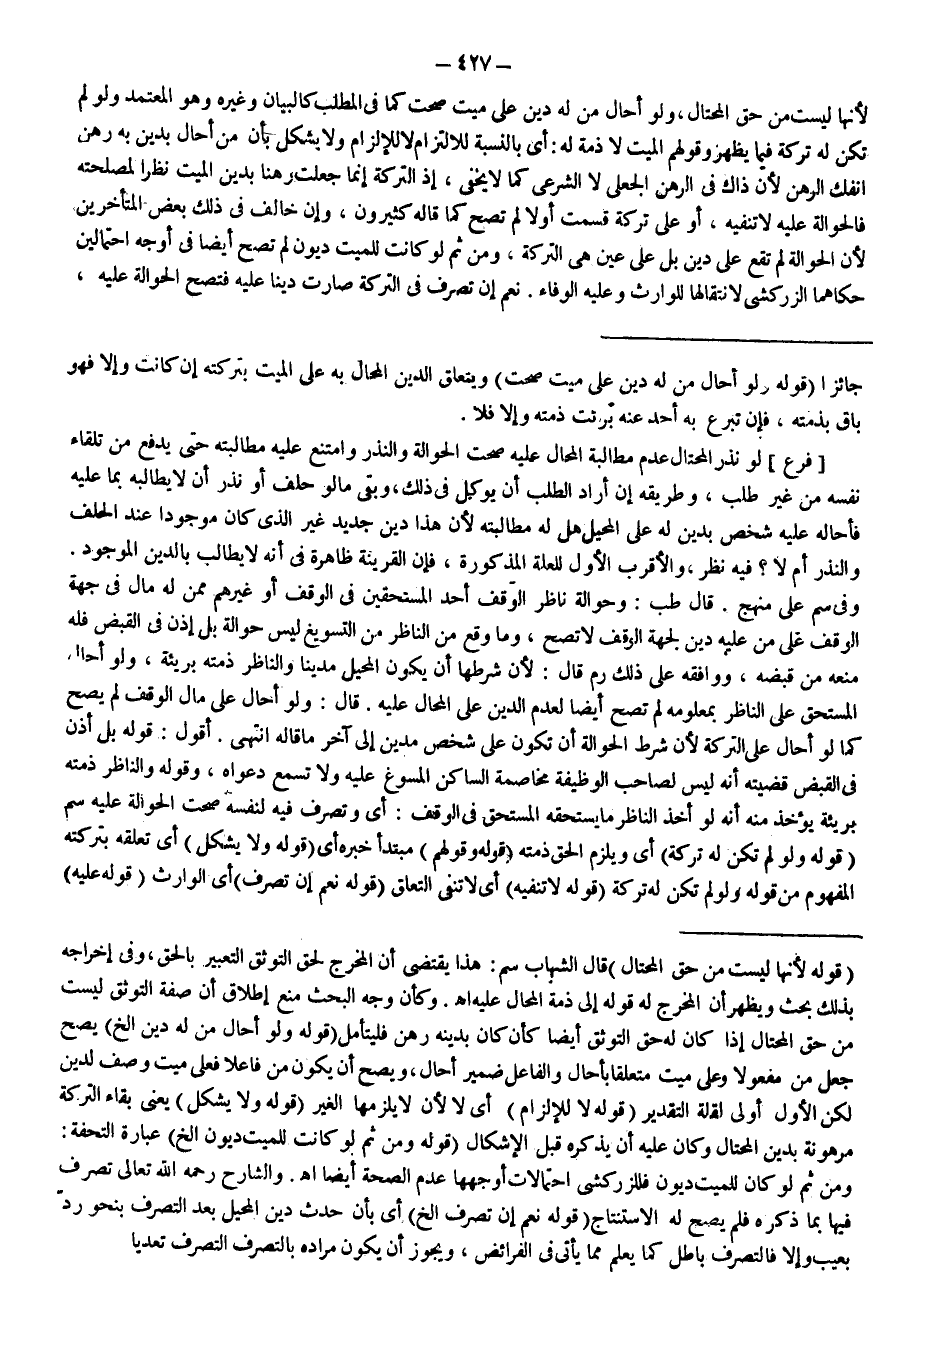 – ٤٢٧ –
لأنها ليست من حق المحتال، ولو أحال من له دين على ميت صحت كما فى المطلب كالبيان وغيره وهو المعتمد ولو لم
تكن له تركة فيما يظهر وقولهم الميت لا ذمة له : أى بالنسبة للالتزام لا للإلزام ولا يشكل بأن من أحال بدين به رهن
انفك الرهن لأن ذاك فى الرهن الجعلى لا الشرعى كما لايخفى ، إذ التركة إنما جعلت رهنا بدين الميت نظرا لمصلحته
فالحوالة عليه لاتنفيه ، أو على تركة قسمت أولا لم تصح كما قاله كثيرون ، وإن خالف فى ذلك بعض المتأخرين
لأن الحوالة لم تقع على دين بل على عين هى التركة ، ومن ثم لو كانت للميت ديون لم تصح أيضا فى أوجه احتمالين
حكاهما الزركشى لانتقالها للوارث وعليه الوفاء . نعم إن تصرف فى التركة صارت دينا عليه فتصح الحوالة عليه ،
جائزا (قوله ولو أحال من له دين على ميت صحت) ويتعلق الدين المحال به على الميت بتركته إن كانت وإلا فهو
باق بذمته ، فإن تبرع به أحد عنه برئت ذمته وإلا فلا .
[ فرع ] لو نذر المحتال عدم مطالبة المحال عليه صحت الحوالة والنذر وامتنع عليه مطالبته حتى يدفع من تلقاء
نفسه من غير طلب ، وطريقه إن أراد الطلب أن يوكل فى ذلك، وبقى مالو حلف أو نذر أن لايطالبه بما عليه
فأحاله عليه شخص بدين له على المحيل هل له مطالبته لأن هذا دين جديد غير الذى كان موجودا عند الحلف
والنذر أم لا ؟ فيه نظر ، والأقرب الأول للعلة المذكورة ، فإن القرينة ظاهرة فى أنه لايطالب بالدين الموجود .
وفى سم على منهج . قال طب : وحوالة ناظر الوقف أحد المستحقين فى الوقف أو غيرهم ممن له مال فى جهة
الوقف على من عليه دين لجهة الوقف لاتصح ، وما وقع من الناظر من التسويغ ليس حوالة بل إذن فى القبض فله
منعه من قبضه ، ووافقه على ذلك رم قال : لأن شرطها أن يكون المحيل مدينا والناظر ذمته بريئة ، ولو أحال
المستحق على الناظر بمعلومه لم تصح أيضا لعدم الدين على المحال عليه . قال : ولو أحال على مال الوقف لم يصح
كما لو أحال على التركة لأن شرط الحوالة أن تكون على شخص مدين إلى آخر ماقاله انتهى . أقول : قوله بل أذن
فى القبض قضيته أنه ليس لصاحب الوظيفة مخاصمة الساكن المسوغ عليه ولا تسمع دعواه ، وقوله والناظر ذمته
بريئة يؤخذ منه أنه لو أخذ الناظر مايستحقه المستحق فى الوقف : أى وتصرف فيه لنفسه صحت الحوالة عليه سم
(قوله ولو لم تكن له تركة) أى ويلزم الحق ذمته (قوله وقولهم) مبتدأ خبره أى (قوله ولا يشكل) أى تعلقه بتركته
المفهوم من قوله ولو لم تكن له تركة (قوله لاتنفيه) أى لاتنفى التعاق (قوله نعم إن تصرف) أى الوارث (قوله عليه)
(قوله لأنها ليست من حق المحتال) قال الشهاب سم : هذا يقتضى أن المخرج لحق التوثق التعبير بالحق، وفى إخراجه
بذلك بحث ويظهر أن المخرج له قوله إلى ذمة المحال عليه اه . وكأن وجه البحث منع إطلاق أن صفة التوثق ليست
من حق المحتال إذا كان له حق التوثق أيضا كأن كان بدينه رهن فليتأمل (قوله ولو أحال من له دين الخ) يصح
جعل من مفعولا وعلى ميت متعلقا بأحال والفاعل ضمير أحال، ويصح أن يكون من فاعلا فعلى ميت وصف لدين
لكن الأول أولى لقلة التقدير (قوله لا للإلزام) أى لا لأن لايلزمها الغير (قوله ولا يشكل) يعنى بقاء التركة
مرهونة بدين المحتال وكان عليه أن يذكره قبل الإشكال (قوله ومن ثم لو كانت للميت ديون الخ) عبارة التحفة :
ومن ثم لو كان للميت ديون فللزركشى احتمالات أوجهها عدم الصحة أيضا اه . والشارح رحمه الله تعالى تصرف
فيها بما ذكره فلم يصح له الاستنتاج (قوله نعم إن تصرف الخ) أى بأن حدث دين المحيل بعد التصرف بنحو ردّ
بعيب وإلا فالتصرف باطل كما يعلم مما يأتى فى الفرائض ، ويجوز أن يكون مراده بالتصرف التصرف تعديا